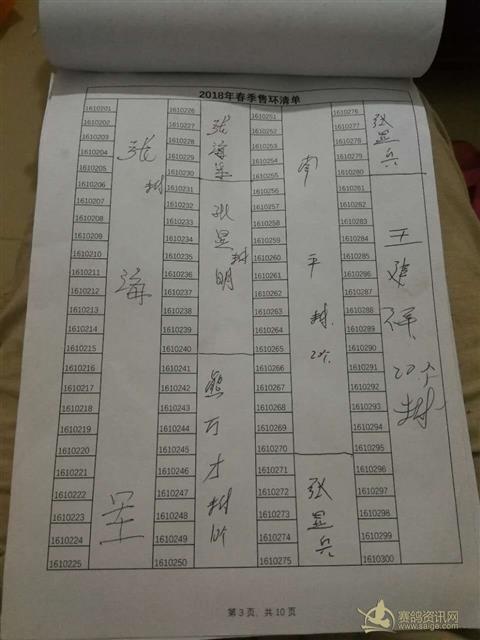 2018年春季售环清单
1610201 1610226 1610251 1610276
1610202 1610227 1610252 1610277
1610203 1610228 1610253 1610278
1610204 1610229 1610254 1610279
1610205 1610230 1610255 1610280
1610206 1610231 1610256 1610281
1610207 1610232 1610257 1610282
1610208 1610233 1610258 1610283
1610209 1610234 1610259 1610284
1610210 1610235 1610260 1610285
1610211 1610236 1610261 1610286
1610212 1610237 1610262 1610287
1610213 1610238 1610263 1610288
1610214 1610239 1610264 1610289
1610215 1610240 1610265 1610290
1610216 1610241 1610266 1610291
1610217 1610242 1610267 1610292
1610218 1610243 1610268 1610293
1610219 1610244 1610269 1610294
1610220 1610245 1610270 1610295
1610221 1610246 1610271 1610296
1610222 1610247 1610272 1610297
1610223 1610248 1610273 1610298
1610224 1610249 1610274 1610299
1610225 1610250 1610275 1610300
张 海
张海
张显明
熊万才
南平 20个
张显兵
张显兵
王建祥 20个
第 3 页，共 10 页
赛鸽资讯网
www.saige.com